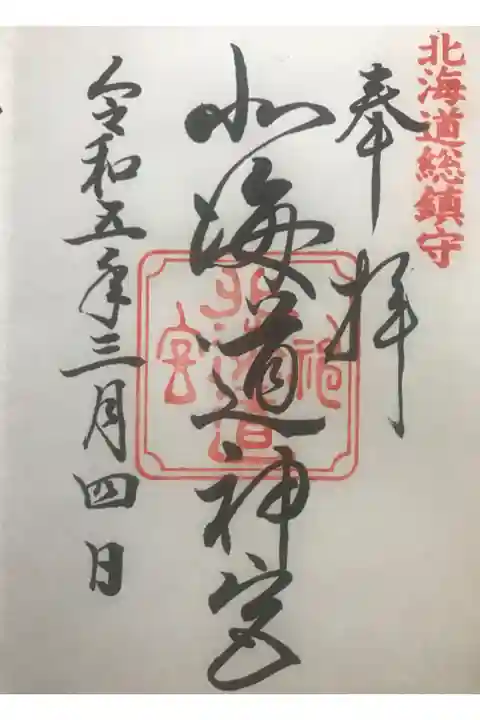 北海道総鎮守
奉拝
北海道神宮
北海道
神
宮
令和五年三月四日